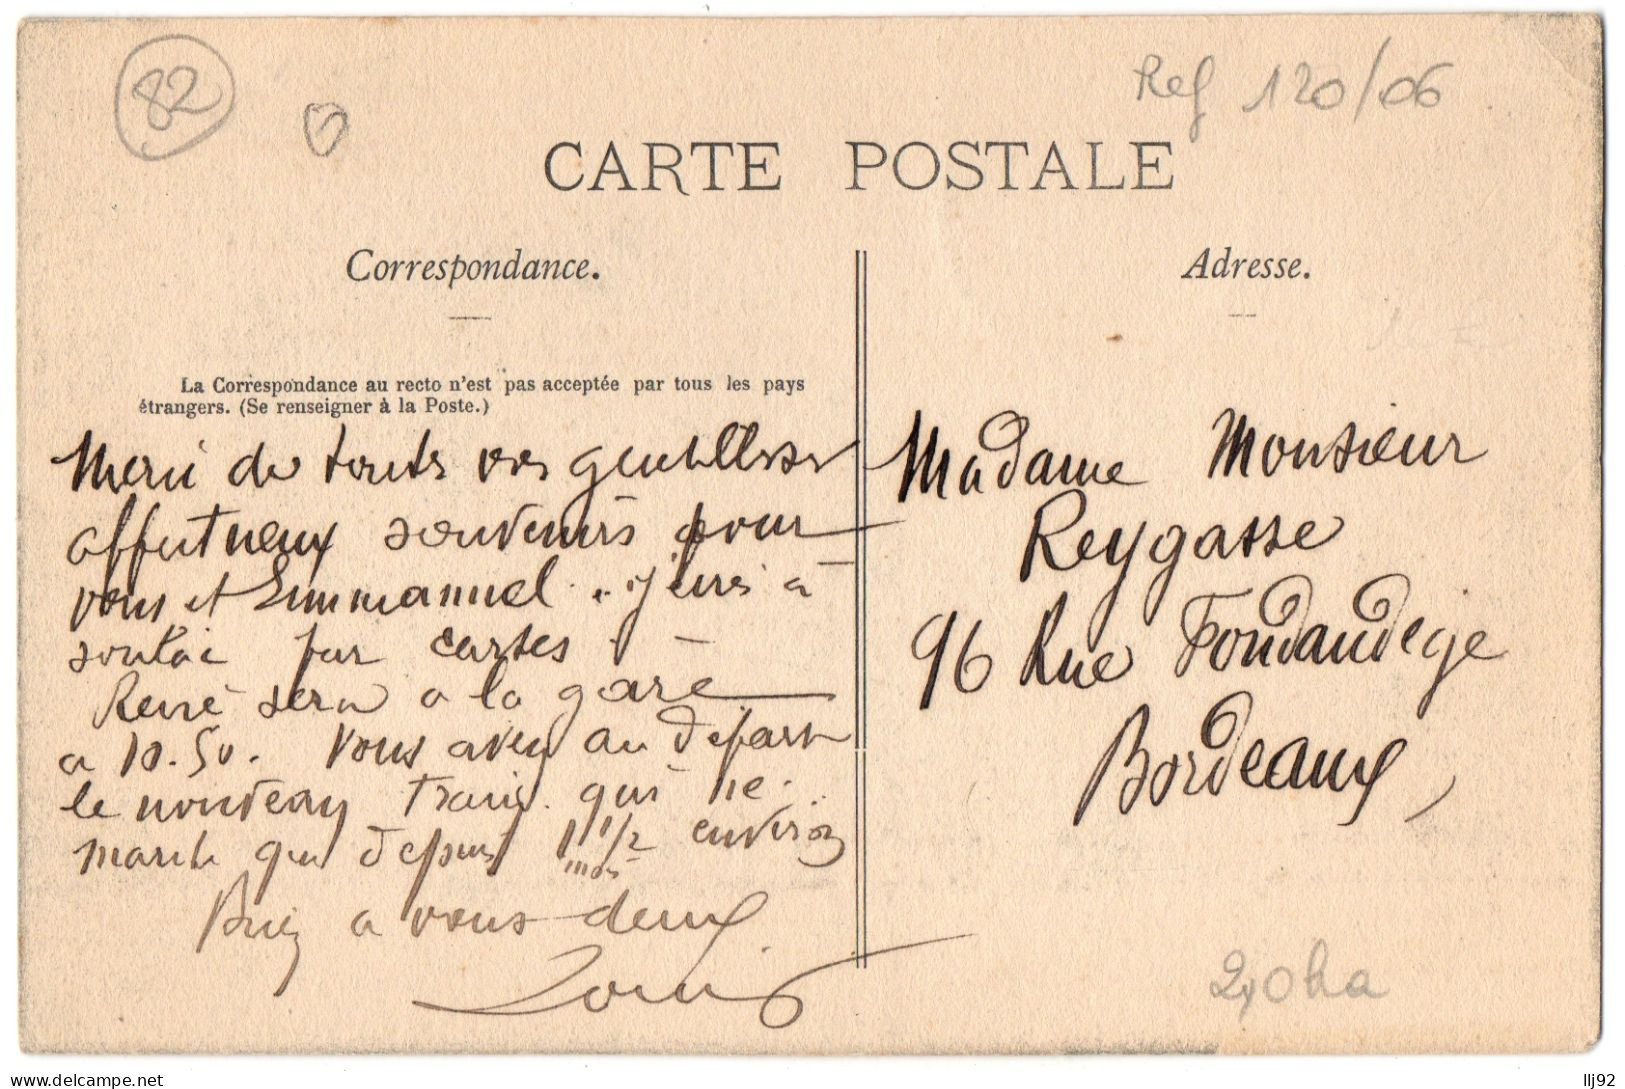 82
Ref 120/06
CARTE POSTALE
Correspondance.
Adresse.
La Correspondance au recto n'est pas acceptée par tous les pays
étrangers. (Se renseigner à la Poste.)
Merci de toutes vos gentillesses
affectueux souvenirs pour
vous et Emmanuel à
par cartes
René sera a la gare
a 10.50. Vous avez au depart
le nouveau train qui ne
marche que depuis 1 1/2 environ
mois
a vous deux
Louis
Madame Monsieur
Reygasse
96 Rue Fondaudège
Bordeaux
llj92
delcampe.net